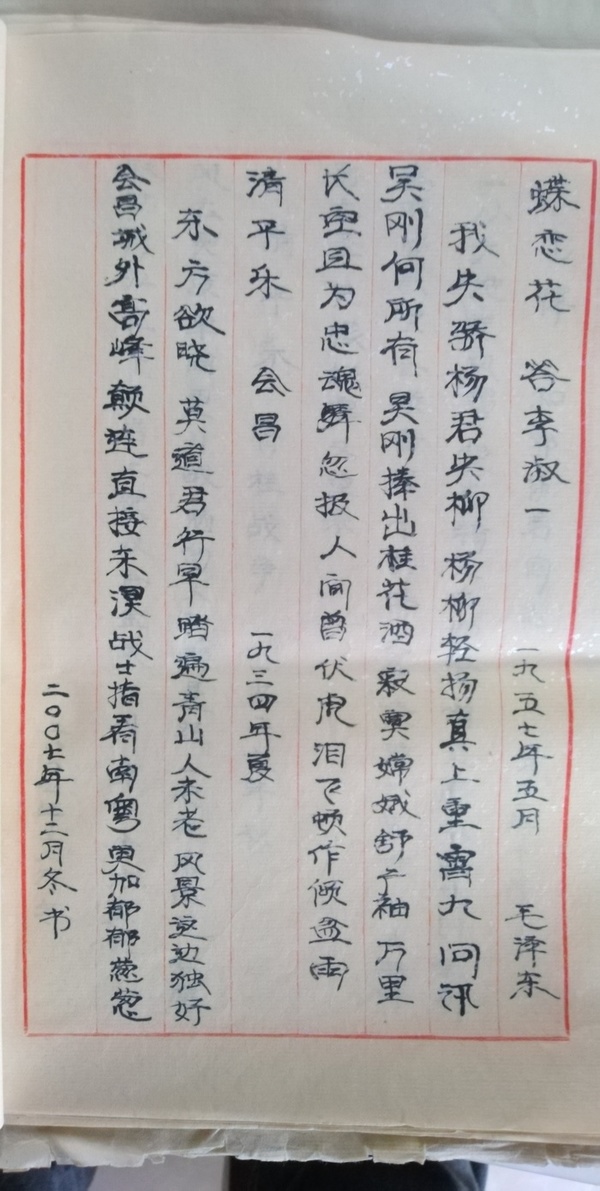 蝶恋花 答李淑一 一九五七年五月 毛泽东
我失骄杨君失柳 杨柳轻扬直上重霄九 问讯
吴刚何所有 吴刚捧出桂花酒 寂寞嫦娥舒广袖 万里
长空且为忠魂舞 忽报人间曾伏虎 泪飞顿作倾盆雨
清平乐 会昌 一九三四年夏
东方欲晓 莫道君行早 踏遍青山人未老 风景这边独好
会昌城外高峰 颠连直接东溟 战士指看南粤 更加郁郁葱葱
二〇〇七年十二月冬书